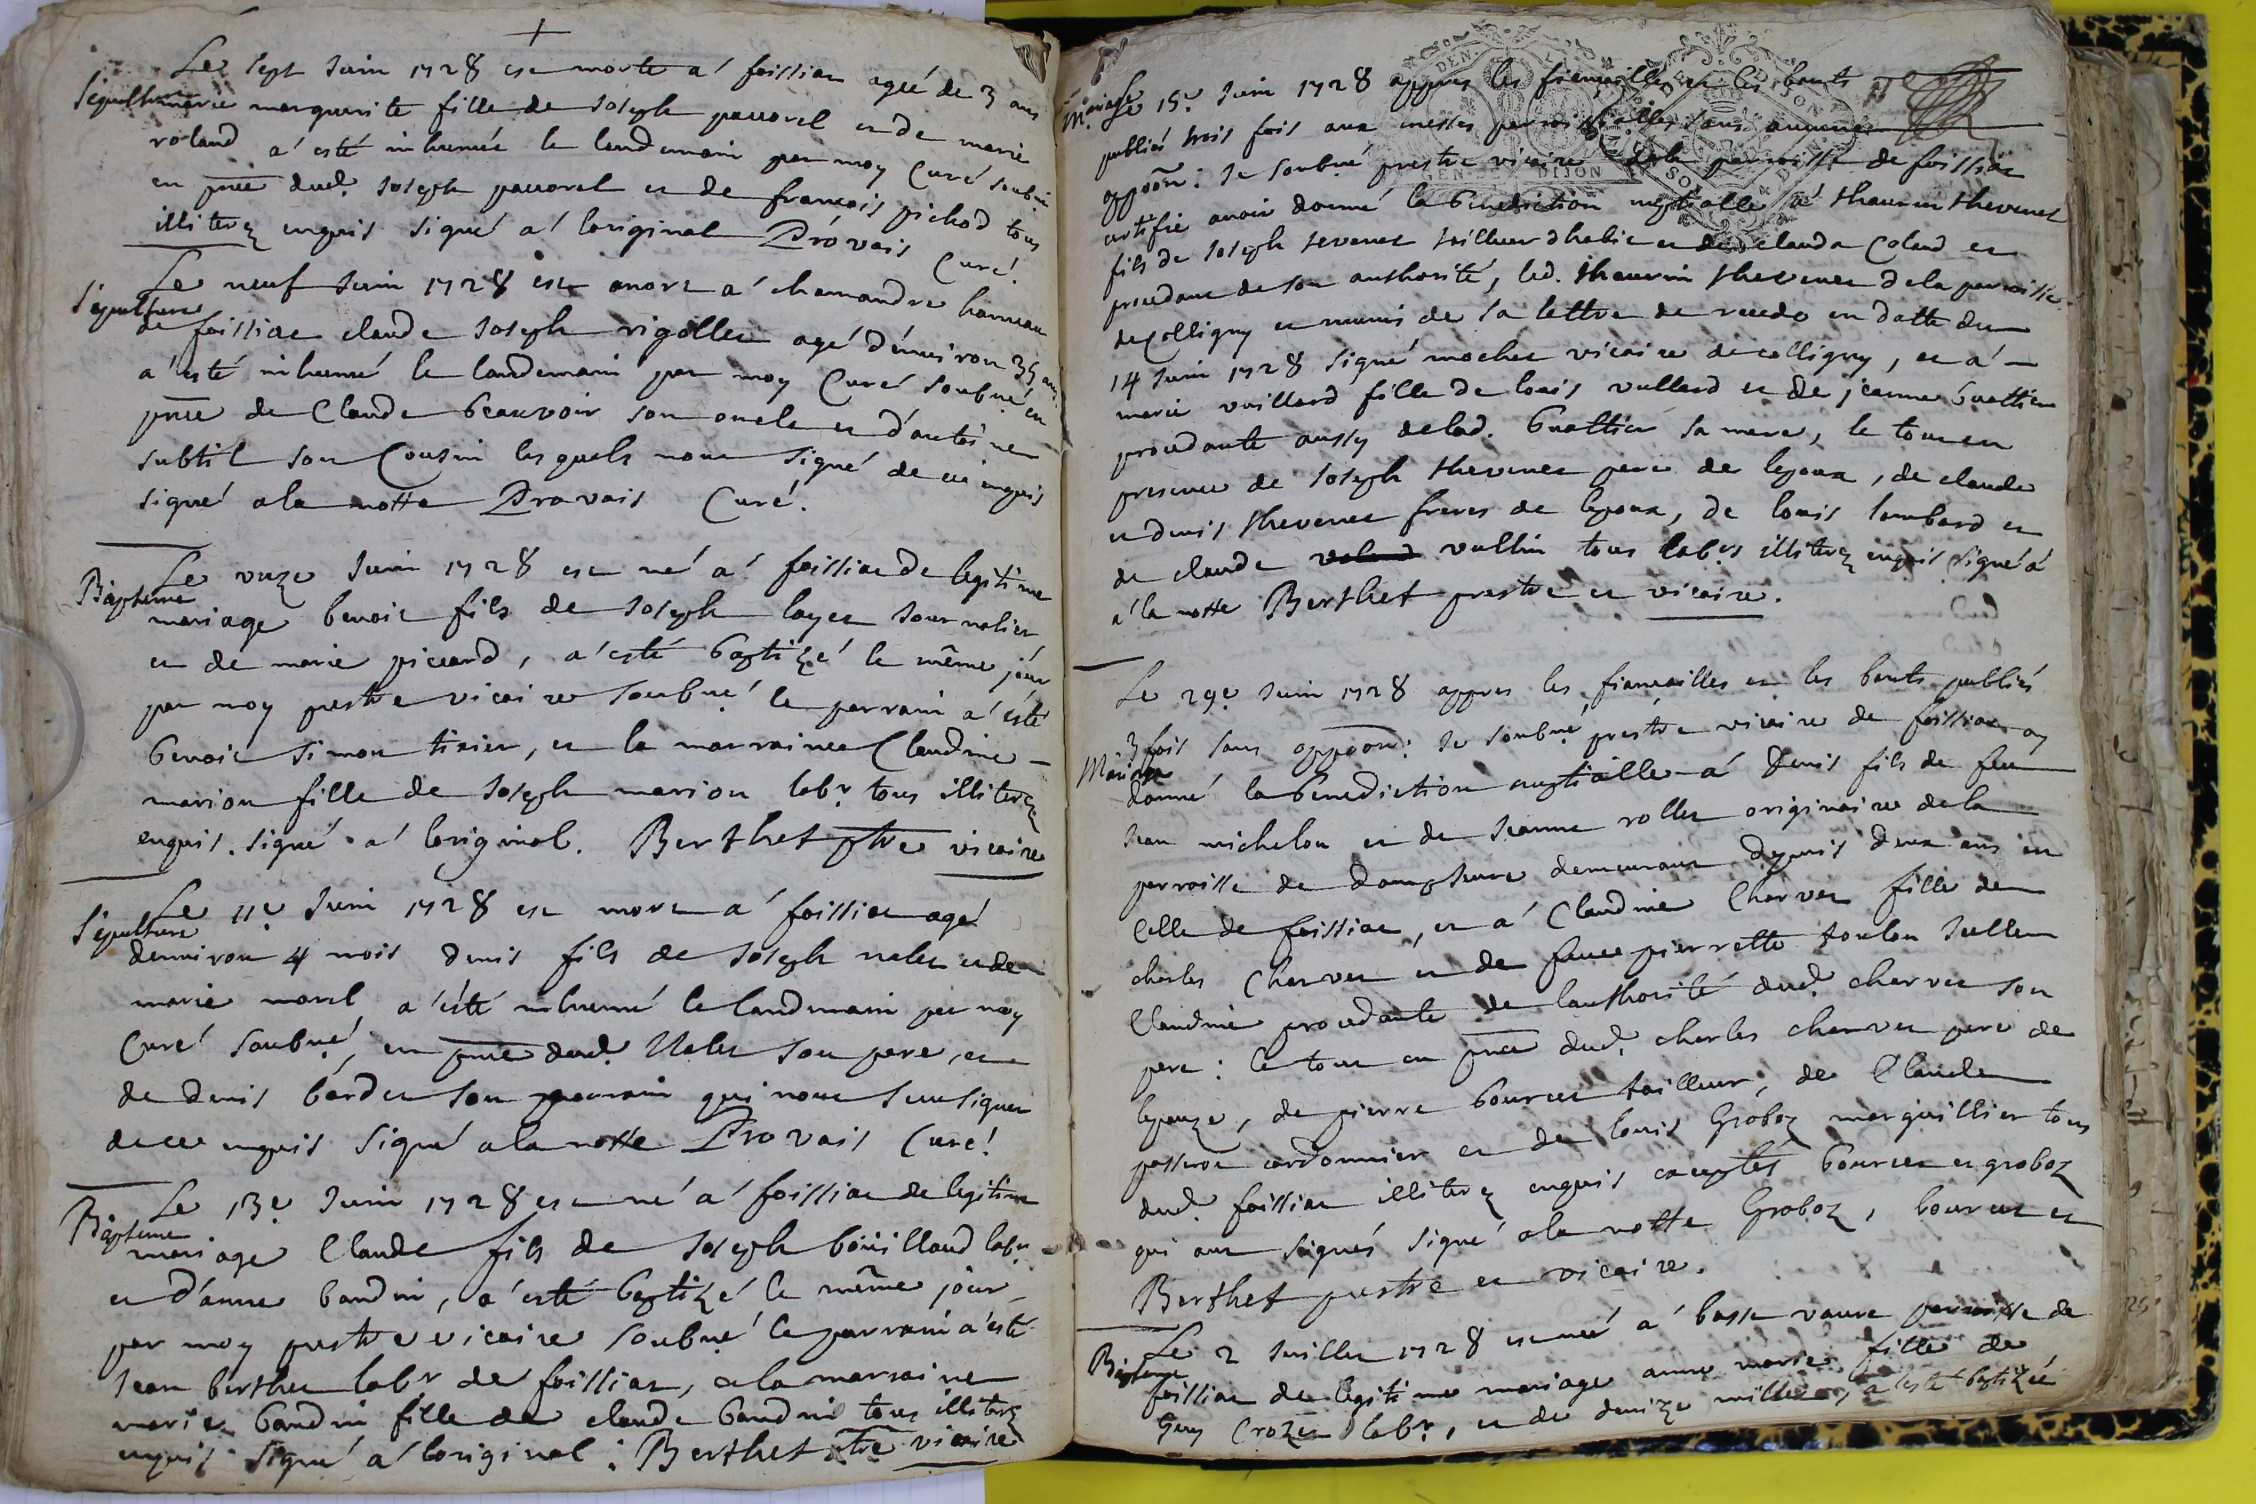 Le sept Juin 1728 est morte a' foissiat ageé de 3 ans
Sepulture
marie marguerite fille de Joseph pauvrel et de marie
roland a' esté inhumée le lendemain par moy Curé soubné
en pnce dud. Joseph pauvrel et de francois pichod tous
illiterez enquis signé a' loriginal Provais Curé.
Le neuf Juin 1728 est mort a' chamandre hameau
Sepulture
de foissiat claude Joseph rigollet agé d'environ 35 ans
a' esté inhumé le landemain par moy Curé soubné en
pnce de Claude beauvoir son oncle et d'antoine
subtil son Cousin lesquels n'ont signé de ce enquis
signé a la notte Provais Curé.
Le onze Juin 1728 est né a' foissiat de legitime
Bapteme
mariage benoit fils de Joseph layer Journalier
et de marie piccard, a' esté baptizé le même jour
par moy prestre vicaire soubné le parrain a' esté
benoit simon tixier, et la marraine Claudine -
marion fille de Joseph marion labr. tous illiterez
enquis. signé a' loriginal. Berthet ptre vicaire
Le 11e Juin 1728 est mort a' foissiat agé
Sepulture
denviron 4 mois denis fils de Joseph nelet et de
marie morel a' esté inhumé le landemain par moy
Curé soubné, en pnce dud. Nelet son pere, et
de denis bordet son parrain qui n'ont sceu signer
de ce enquis signé a la notte Provais Curé.
Le 13e Juin 1728 est né a' foissiat de legitime
Bapteme
mariage Claude fils de Joseph boüillaud labr.
et d'anne baudin, a' esté baptizé le même jour
par moy prestre vicaire soubné le parrain a' esté
Jean berthet labr. de foissiat, et la marraine
marie baudin fille de claude baudin tous illiterez
enquis signé a' loriginal : Berthet ptre vicaire
Mariage
Le 15e Juin 1728 appres les fiancailles et les bants
publiés trois fois aux messes parroissialles sans aucune
oppoon: Je soubné prestre vicaire de la parroisse de foissiat
certifie avoir donné la benediction nuptialle a' thaurin thevenet
fils de Joseph tevenet tailleur dhabit et de clauda Coland et
procedant de son authorité, led. thaurin thevenet de la parroisse
de Colligny et munis de la lettre de recedo en datte du
14 Juin 1728 signé mochet vicaire de colligny, et a' -
marie vuillard fille de louis vullard et de jeanne buattier
procedante aussy de lad. buattier sa mere, le tout en
presence de Joseph thevenet pere de lepoux, de claude
et denis thevenet freres de lepoux, de louis lombard et
de claude vullin tous labrs illiterez enquis signé a'
a' la notte Berthet prestre et vicaire.
Le 29e Juin 1728 appres les fiancailles et les bants publiés
Mariage
3 fois sans oppoon: Je soubné prestre vicaire de foissiat ay
donné la benediction nuptialle a' denis fils de feu
Jean michelon et de Jeanne rollet originaire de la
parroisse de dompsure demeurant depuis deux ans en
Celle de foissiat, et a' Claudine Charvet fille de
charles Charvet et de feue pierrette toulon Jcelle
Claudine procedante de lauthorité dud. charvet son
pere : le tout en pnce dud. charles charvet pere de
lepouze, de pierre bourcet tailleur, de Claude
passerat cordonnier et de louis Groboz marguillier tous
dud. foissiat illiterez enquis exceptés bourcet et groboz
qui ont signés signé a la notte Groboz, bourcet et
Berthet prestre et vicaire.
Le 2 Juillet 1728 est neé a' basse vavre parroisse de
Bapteme
foissiat de legitime mariage anne marie fille de
Guy Crozet labr., et de denize millet, a' esté baptizeé